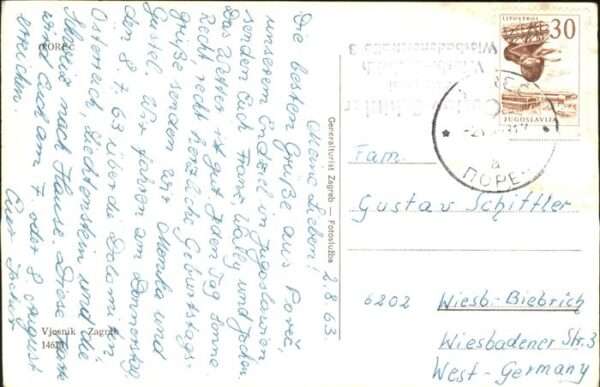 POREČ
2.8.63
Meine Lieben!
Die besten Grüße aus Poreč,
unserem Endziel in Jugoslawien
senden Euch Franz, Wally und Jochen.
Das Wetter ist gut jeden Tag Sonne.
Recht recht herzliche Geburtstags-
grüße senden wir Monika und
Gustel. Wir fahren am Donnerstag
den 8.7.63 über die Dolomiten,
Österreich, Liechtenstein und die
Schweiz nach Hause. Diese Karte
wird Euch am 7. oder 8. August
erreichen.
Euer Jochen
Vjesnik - Zagreb
Generalturist Zagreb — Fotoslužba
30
JUGOSLAVIJA
ПОРЕЧ
Fam.
Gustav Schittler
6202 Wiesb-Biebrich
Wiesbadener Str. 3
West-Germany